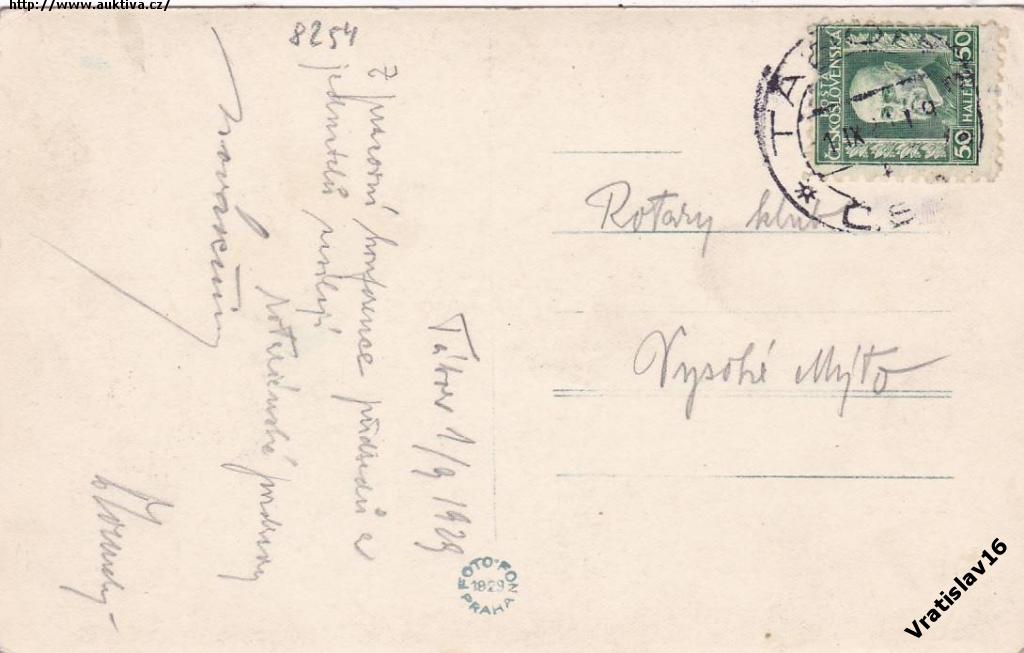 http://www.auktiva.cz/
8254
Tábor 1/9 1929
Z pracovní konference předsedů a
jednatelů
Rotariánské pozdravy
Rotary klub
Vysoké Mýto
POŠTA
ČESKOSLOVENSKÁ
50 HALÉŘŮ 50
TÁBOR
1.IX
FOTO-FON
1829
PRAHA
Vratislav16